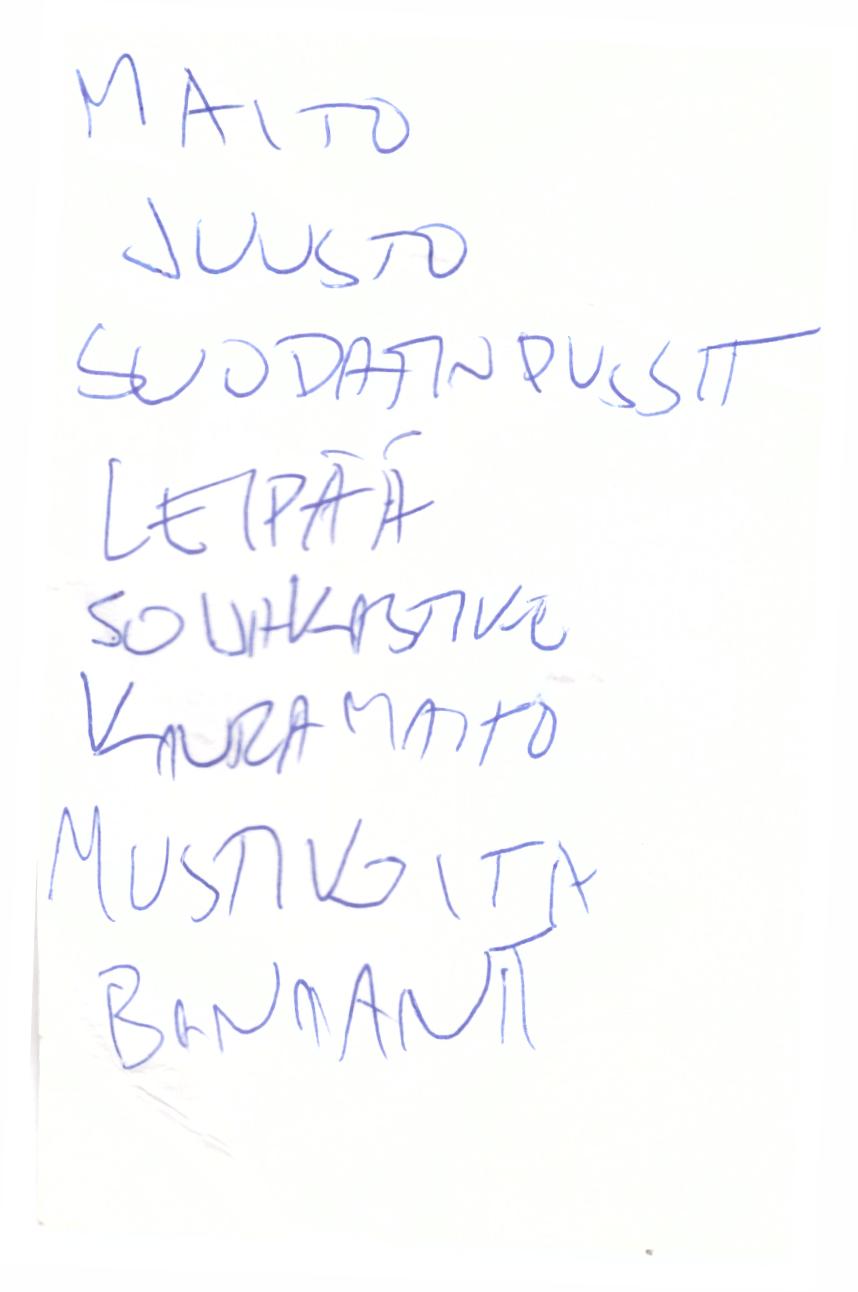 MAITO
JUUSTO
SUODATINPUSSIT
LEIPÄÄ
SOIJAKASTIKE
KAURAMAITO
MUSTIKOITA
BANAANIT